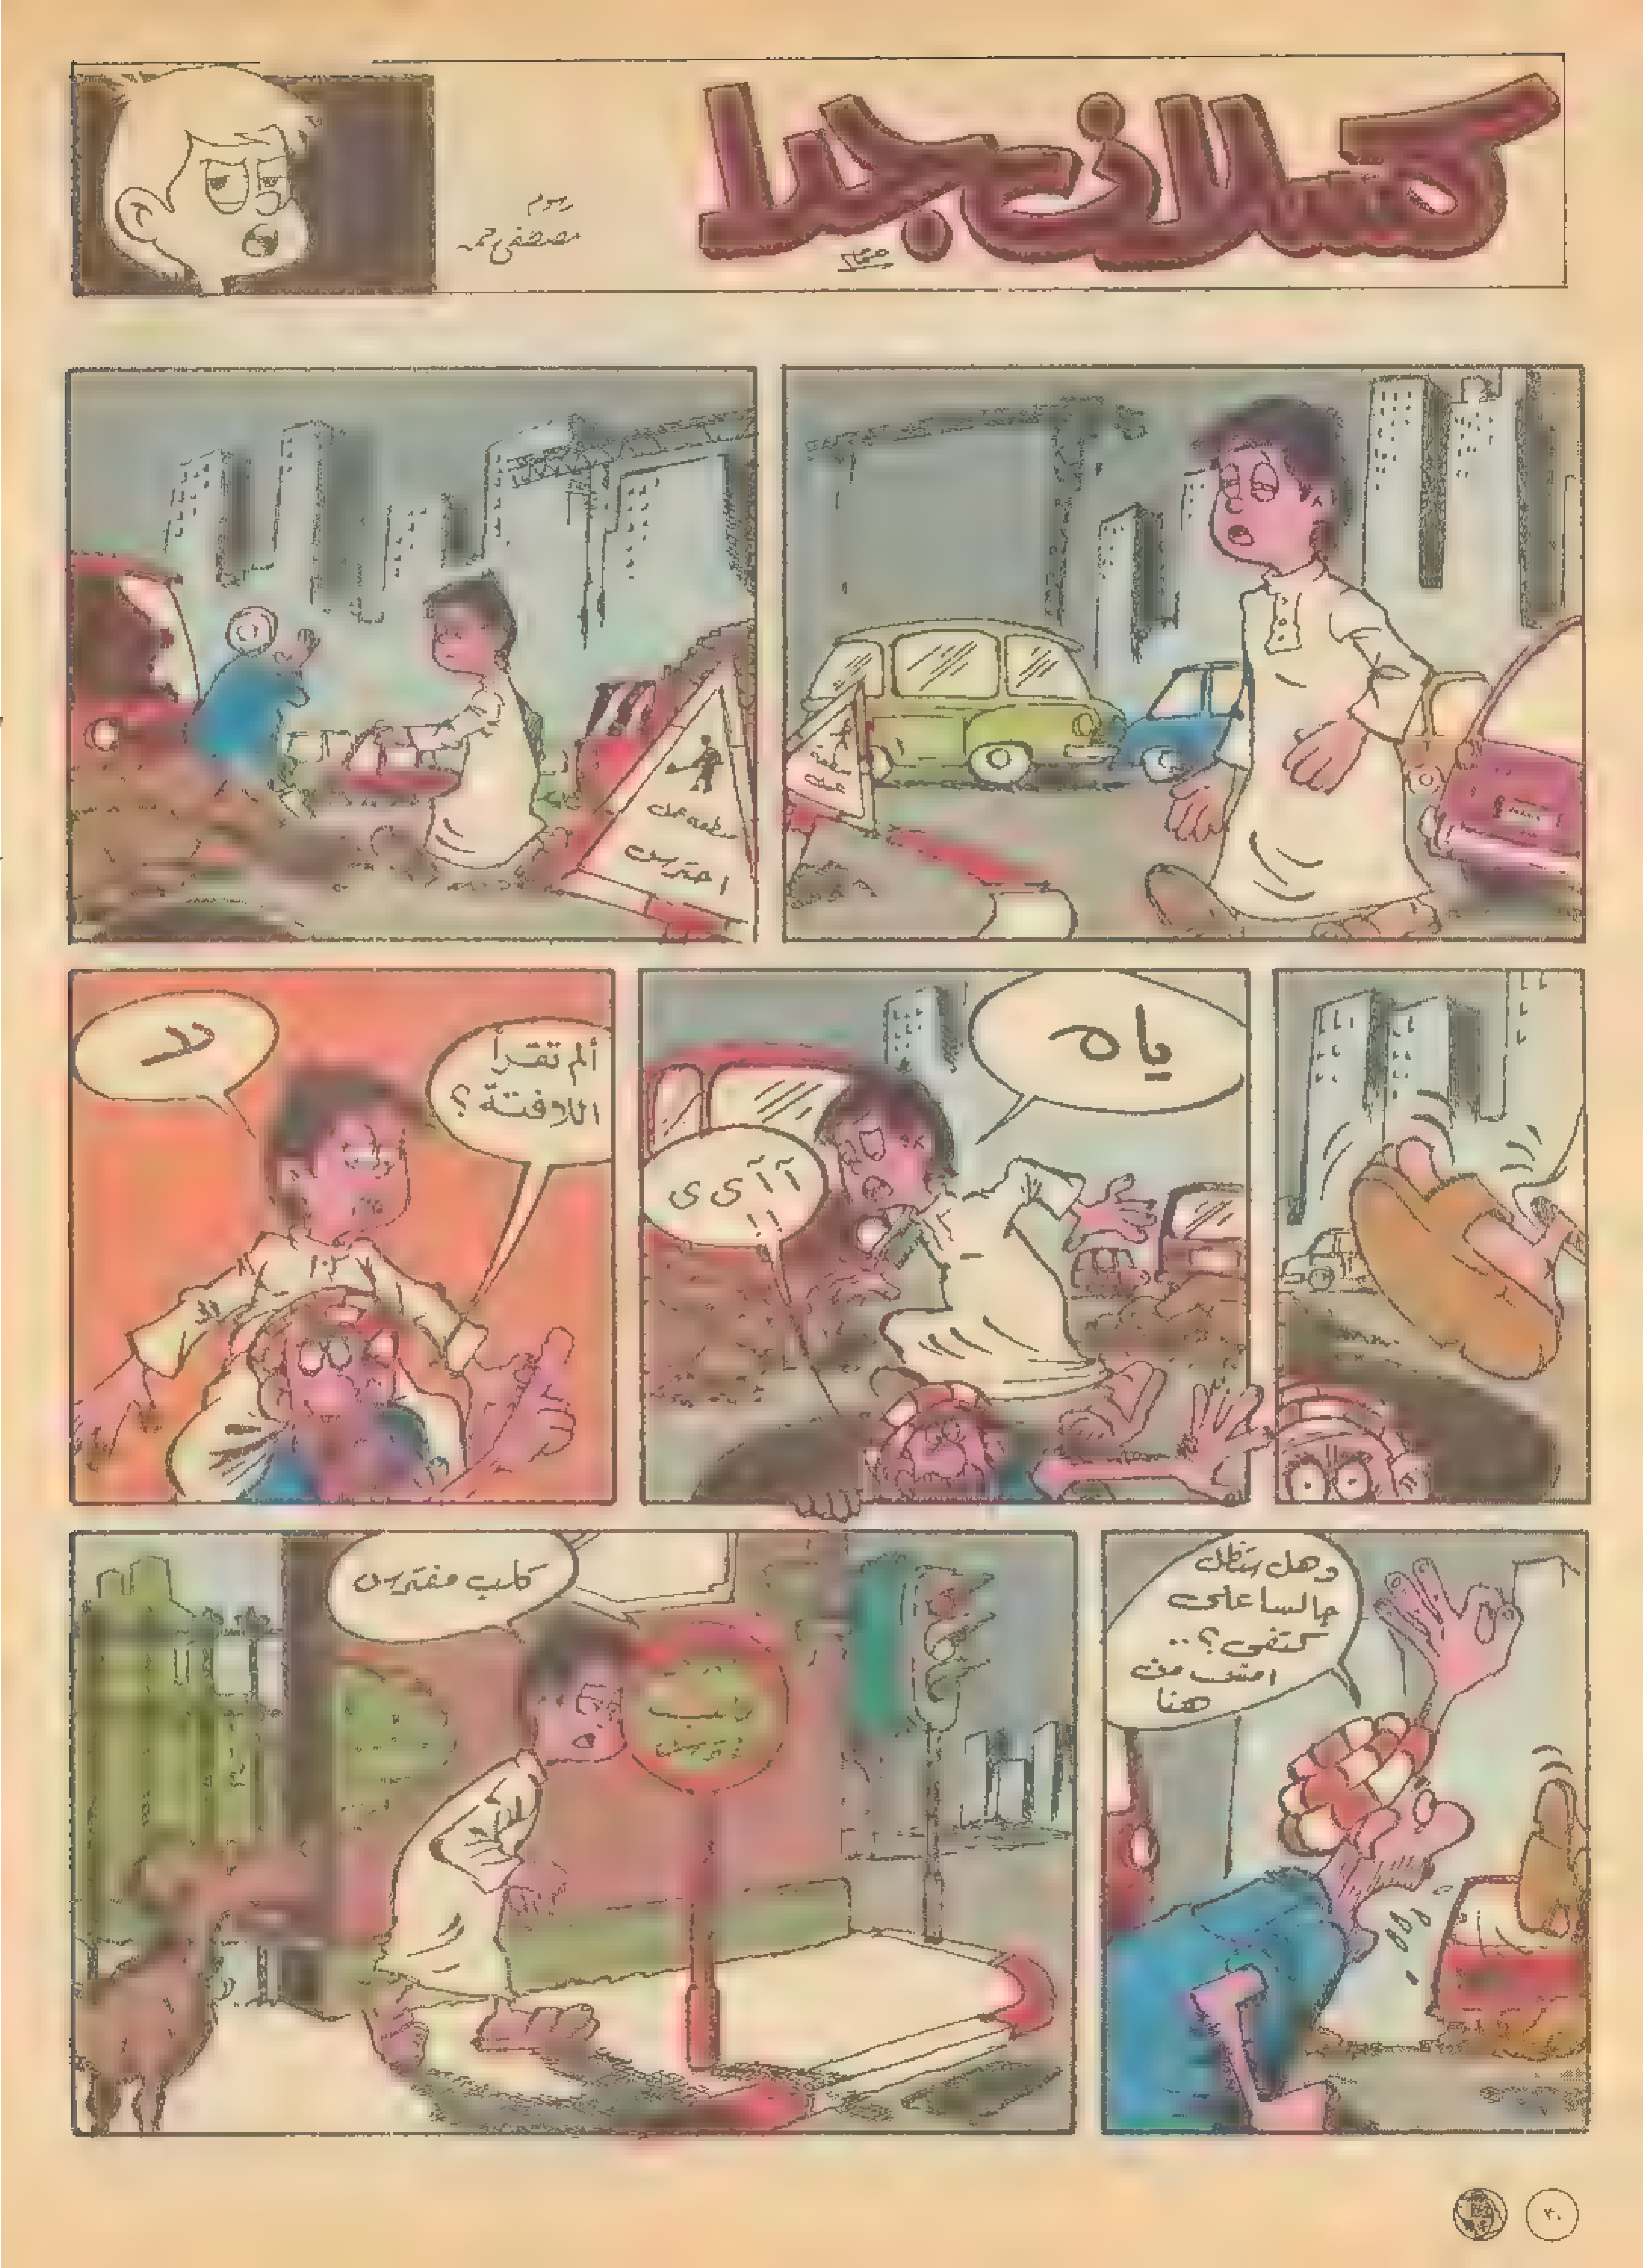 كسلان جدا
رسوم
مصطفى رحمه
منطقة
عمل
منطقة عمل
احترس
ياه
آآى ى
!!
ألم تقرأ
اللافتة؟
لا
وهل ستظل
جالسا على
كتفى؟..
امش من
هنا
كلب مفترس
٣٠